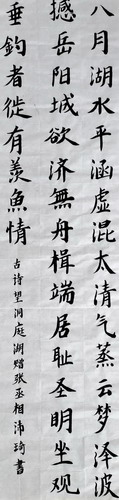 八月湖水平涵虚混太清气蒸云梦泽波
撼岳阳城欲济無舟楫端居耻圣明坐观
垂釣者徙有羨魚情
古诗望洞庭湖赠张丞相沛琦书